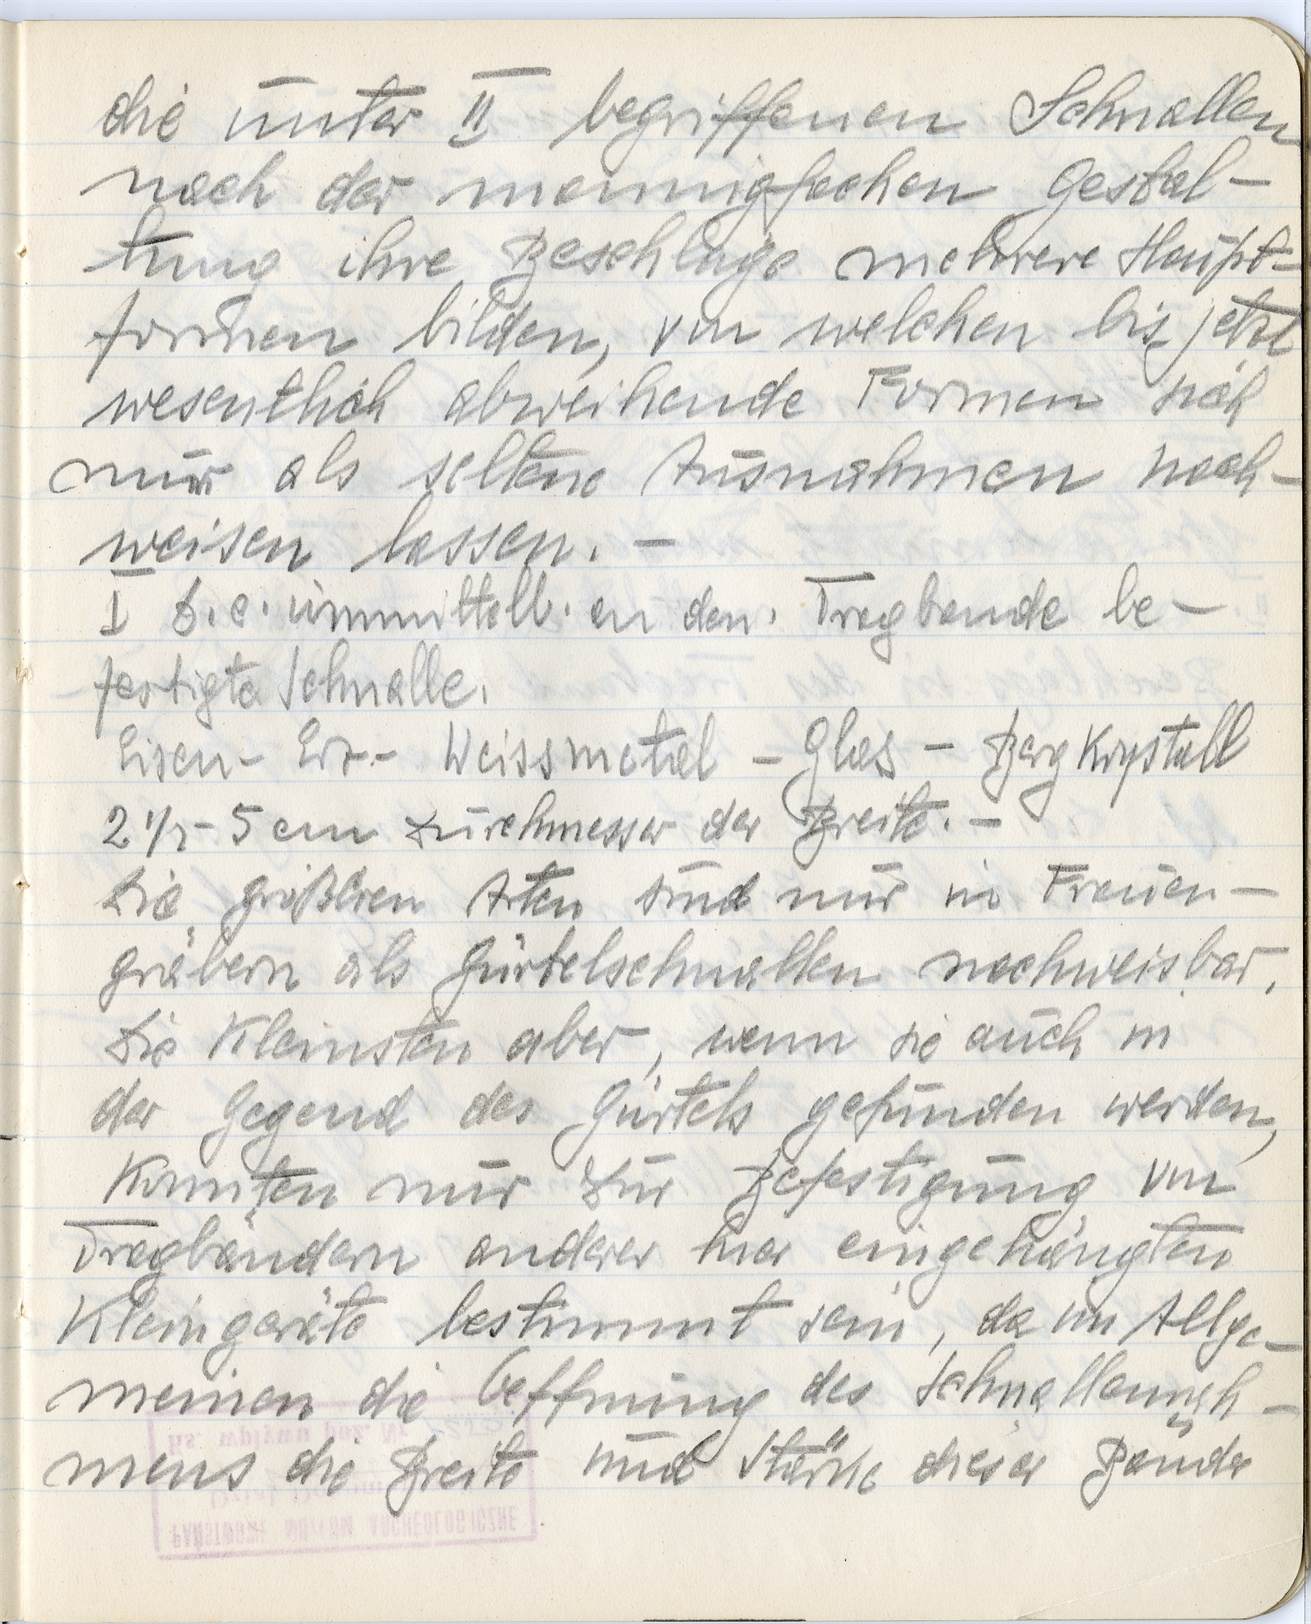 die unter II begriffenen Schnallen
nach der mannigfachen Gestal-
tung ihre Beschläge mehrere Haupt-
formen bilden, von welchen bis jetzt
wesentlich abweihende Formen sich
nur als seltene Ausnahmen nach-
weisen lassen. —
I d.e. unmittelb. an den. Tragbande be-
festigte Schnalle.
Eisen- Erz- Weissmetal - Glas - Bergkrystall
2 1/2 - 5 cm Durchmesser der Breite. -
Die größeren Arten sind nur in Frauen-
gräbern als Gürtelschnallen nachweisbar,
Die Kleinsten aber, wenn sie auch in
der Gegend des Gürtels gefunden werden,
Konnten nur zur Befestigung von
Tragbändern anderer hier eingehängten
Kleingeräte bestimmt sein, da im Allge-
meinen die Oeffnung des Schnallenrah-
mens die Breite und Stärke dieser Bänder
PAŃSTWOWE MUZEUM ARCHEOLOGICZNE